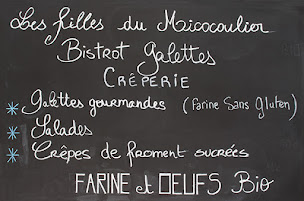 Les filles du Micocoulier
Bistrot Galettes
CRÊPERIE
* Galettes gourmandes (Farine Sans Gluten)
* Salades
* Crêpes de froment sucrées
FARINE et OEUFS Bio